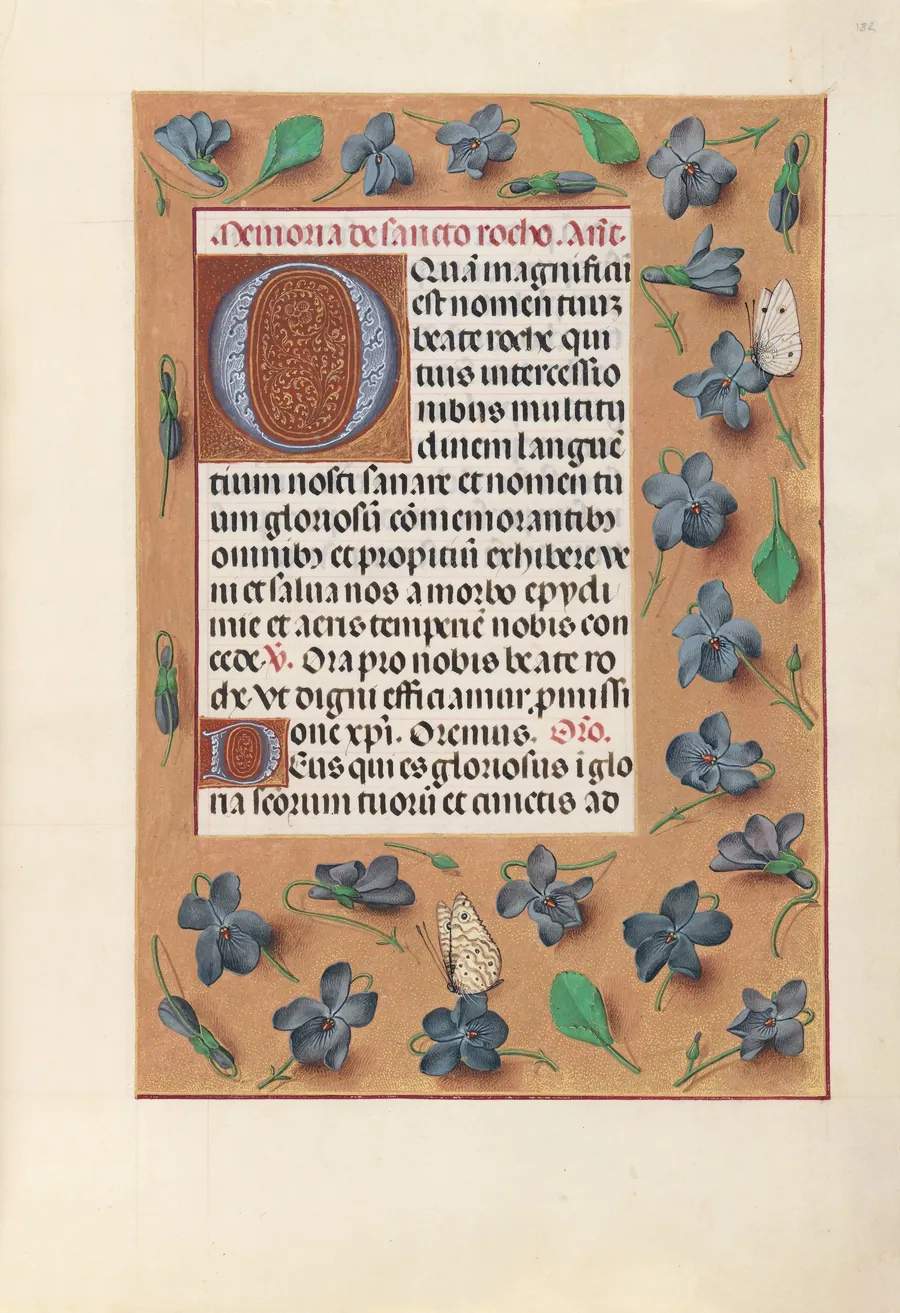 182
Memoria de sancto rocho. Añt.
O Quã magnifici
est nomen tuuz
beate roche qui
tuis intercessio
nibus multitu
dinem languẽ
tium nosti sanare et nomen tu
um gloriosũ cõmemorantibꝫ
omnibꝫ et propitiũ exhibere ve
ni et salua nos a morbo epydi
mie et aeris temperiẽ nobis con
cede. V̄. Ora pro nobis beate ro
che. Vt digni efficiamur ꝓmissi
one xp̄i. Oremus. Or̃o.
DEus qui es gloriosus ĩ glo
ria sc̄orum tuorũ et cunctis ad